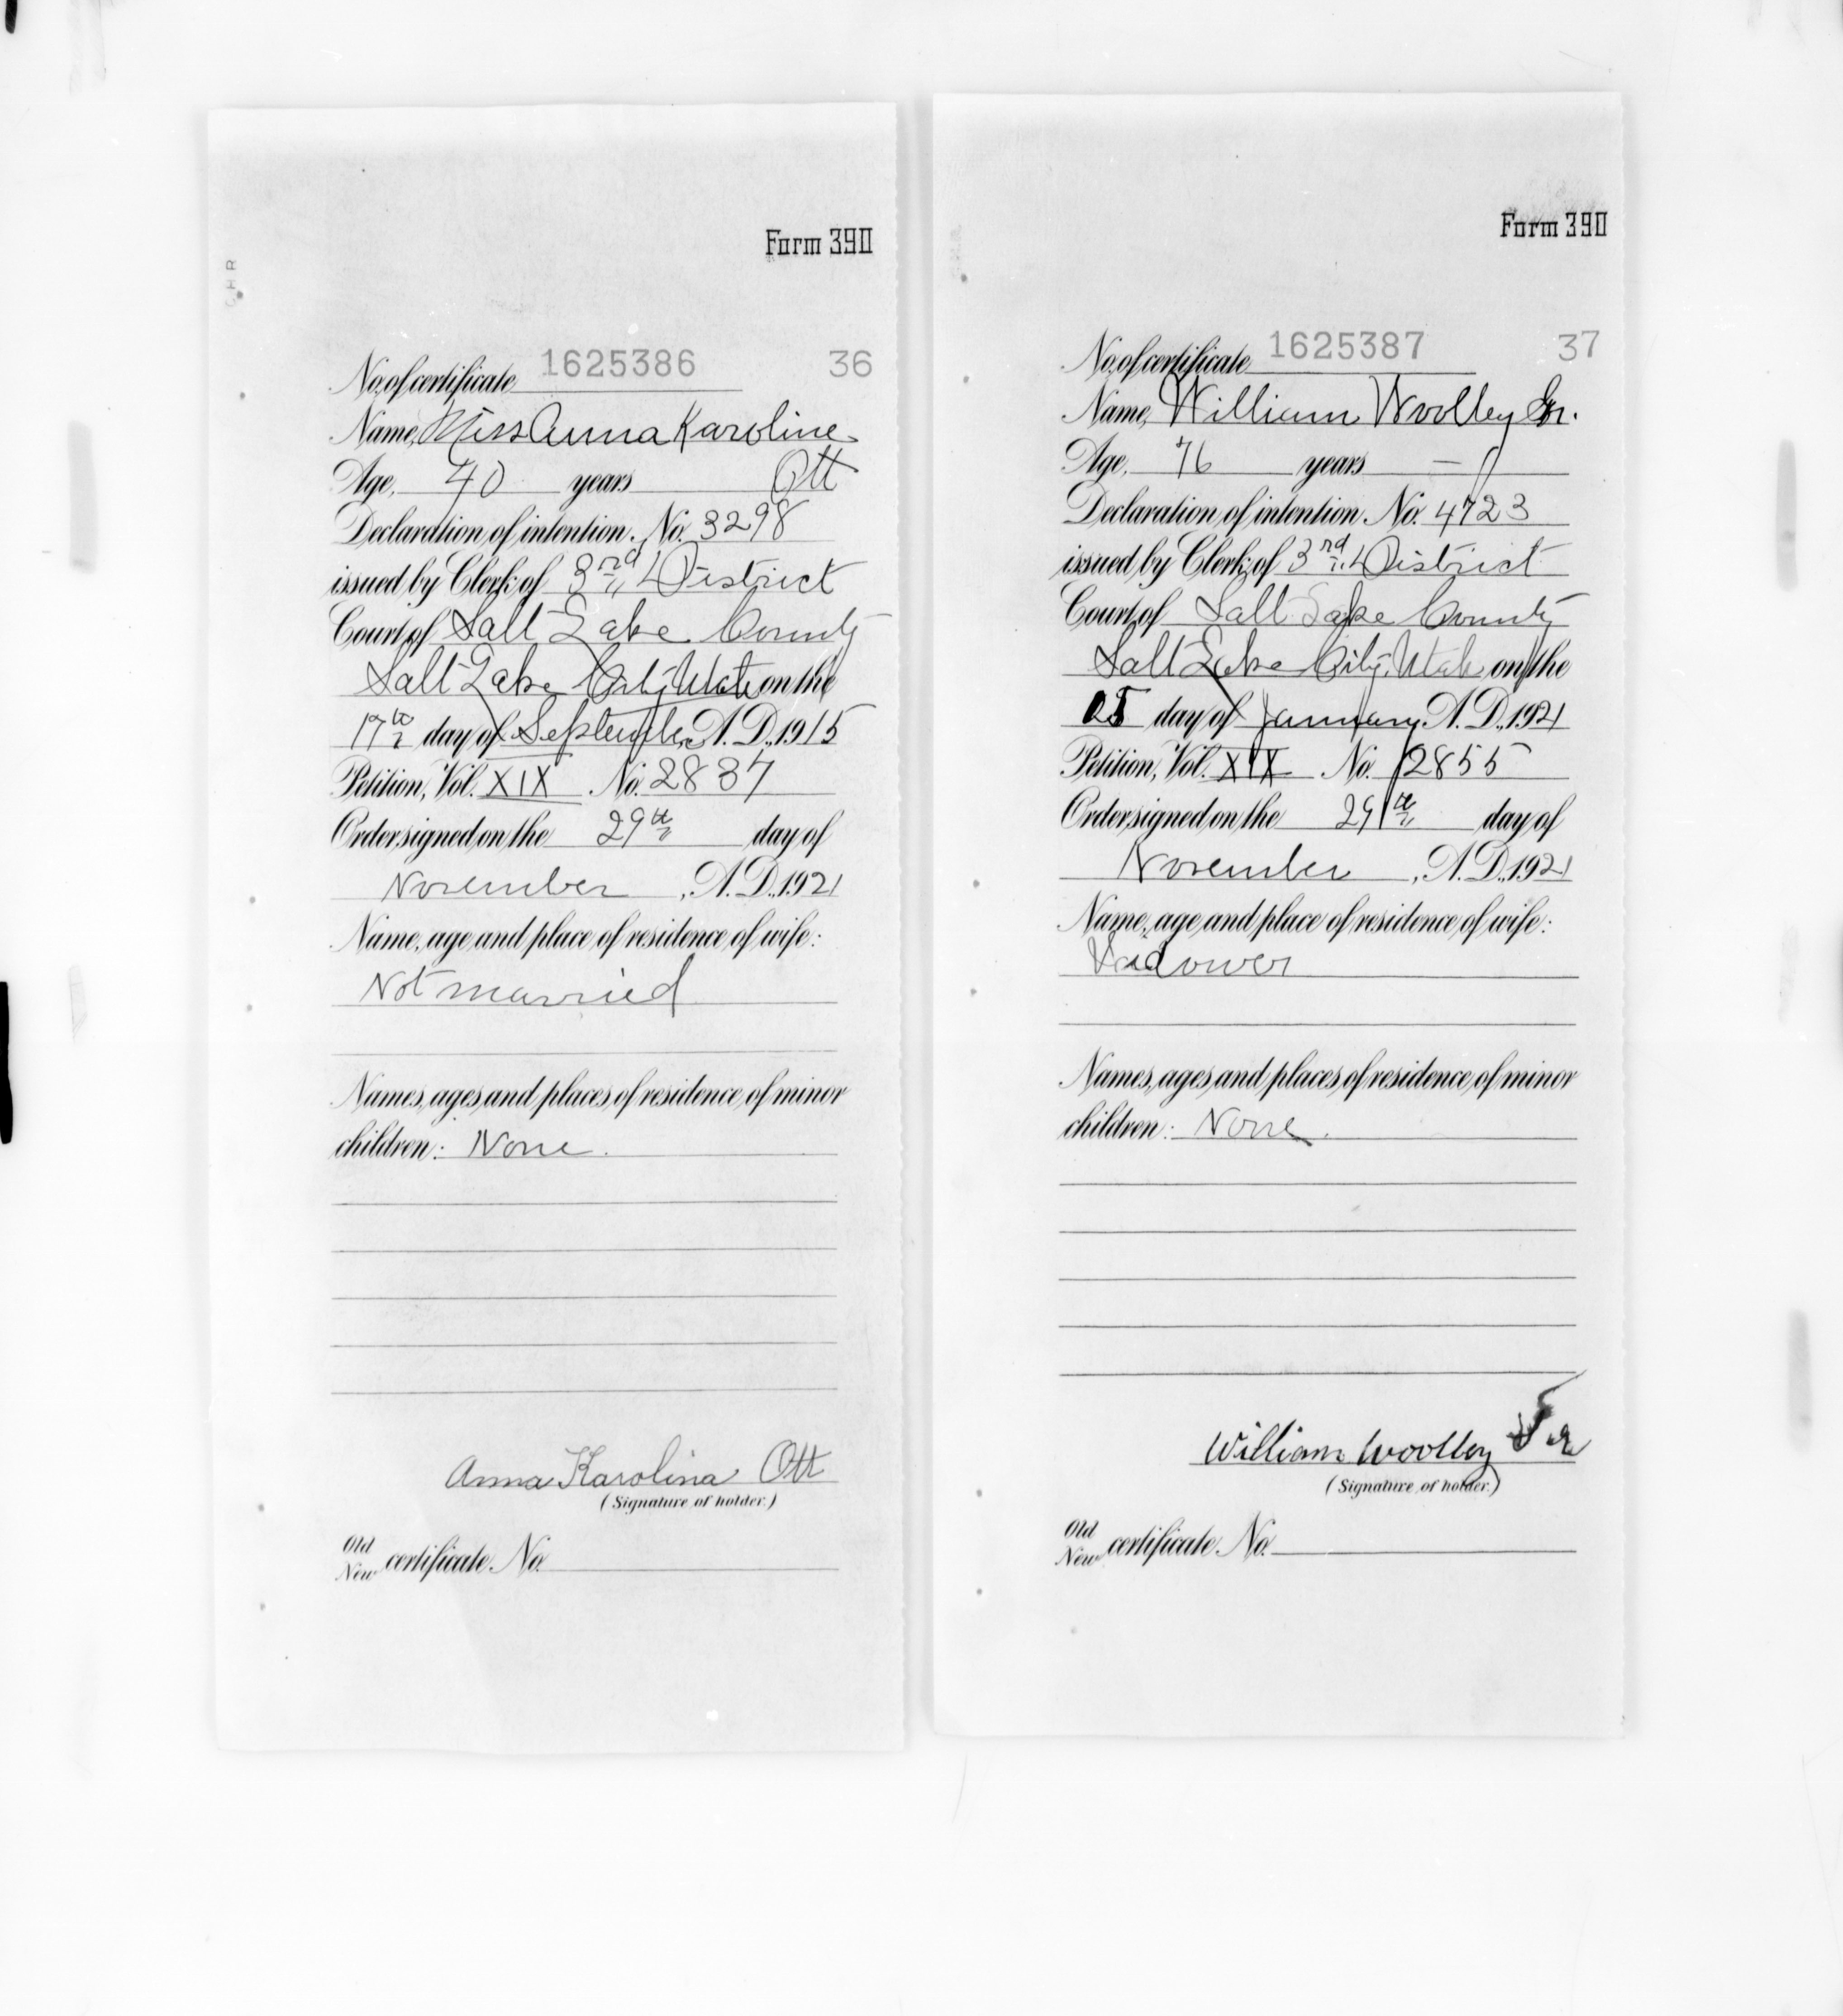 Form 390
CHR
No. of certificate 1625386 36
Name, Miss Anna Karoline
Age, 40 years Ott
Declaration of intention, No. 3298
issued by Clerk of 3rd District
Court of Salt Lake County
Salt Lake City, Utah on the
17th day of September, A.D., 1915
Petition, Vol. XIX No. 2837
Order signed on the 29th day of
November, A.D., 1921
Name, age and place of residence of wife:
Not married
Names, ages and places of residence of minor
children: None.
Anna Karolina Ott
(Signature of holder.)
Old
New certificate No.
Form 390
No. of certificate 1625387 37
Name, William Woolley Sr.
Age, 76 years —
Declaration of intention No. 4723
issued by Clerk of 3rd District
Court of Salt Lake County
Salt Lake City, Utah on the
day of January, A.D., 1921
Petition, Vol. XIX No. 2855
Order signed on the 29th day of
November, A.D., 1921
Name, age and place of residence of wife:
Widower
Names, ages and places of residence of minor
children: None.
William Woolley
(Signature of holder.)
Old
New certificate No.